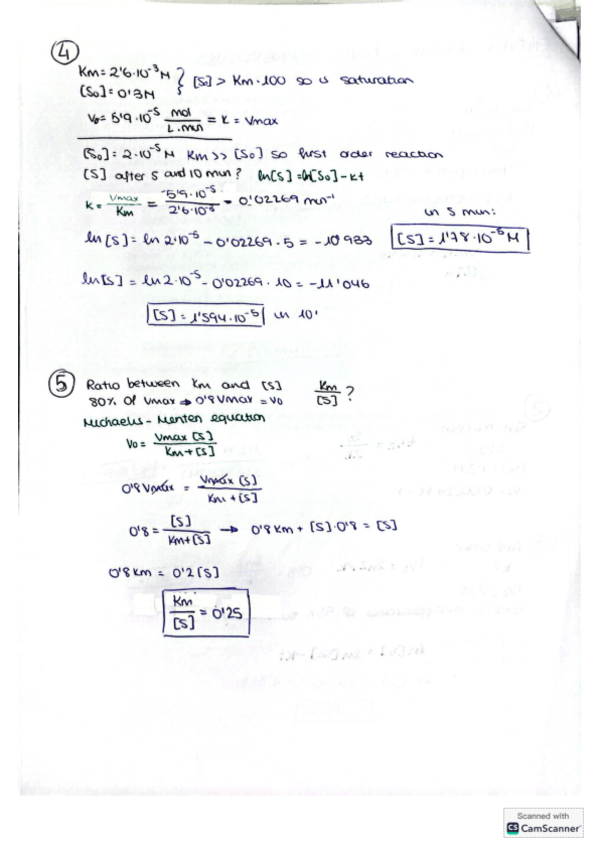 4
Km = 2'6·10⁻³ M
[S₀] = 0'3M } [S₀] > Km·100 so is saturation
V₀ = 5'9·10⁻⁵ mol/L·min = K = Vmax
[S₀] = 2·10⁻⁵ M Km >> [S₀] so first order reaction
[S] after 5 and 10 min? ln[S] = ln[S₀] - Kt
K = Vmax/Km = 5'9·10⁻⁵/2'6·10⁻³ = 0'02269 min⁻¹
in 5 min:
ln[S] = ln 2·10⁻⁵ - 0'02269·5 = -10'933 [S] = 1'78·10⁻⁵ M
ln[S] = ln 2·10⁻⁵ - 0'02269·10 = -11'046
[S] = 1'594·10⁻⁵ in 10'
5 Ratio between Km and [S] Km/[S] ?
80% of Vmax → 0'8 Vmax = V₀
Michaelis-Menten equation
V₀ = Vmax [S]/Km + [S]
0'8 Vmax = Vmax [S]/Km + [S]
0'8 = [S]/Km + [S] → 0'8 Km + [S]·0'8 = [S]
0'8 Km = 0'2 [S]
Km/[S] = 0'25
Scanned with
CS CamScanner